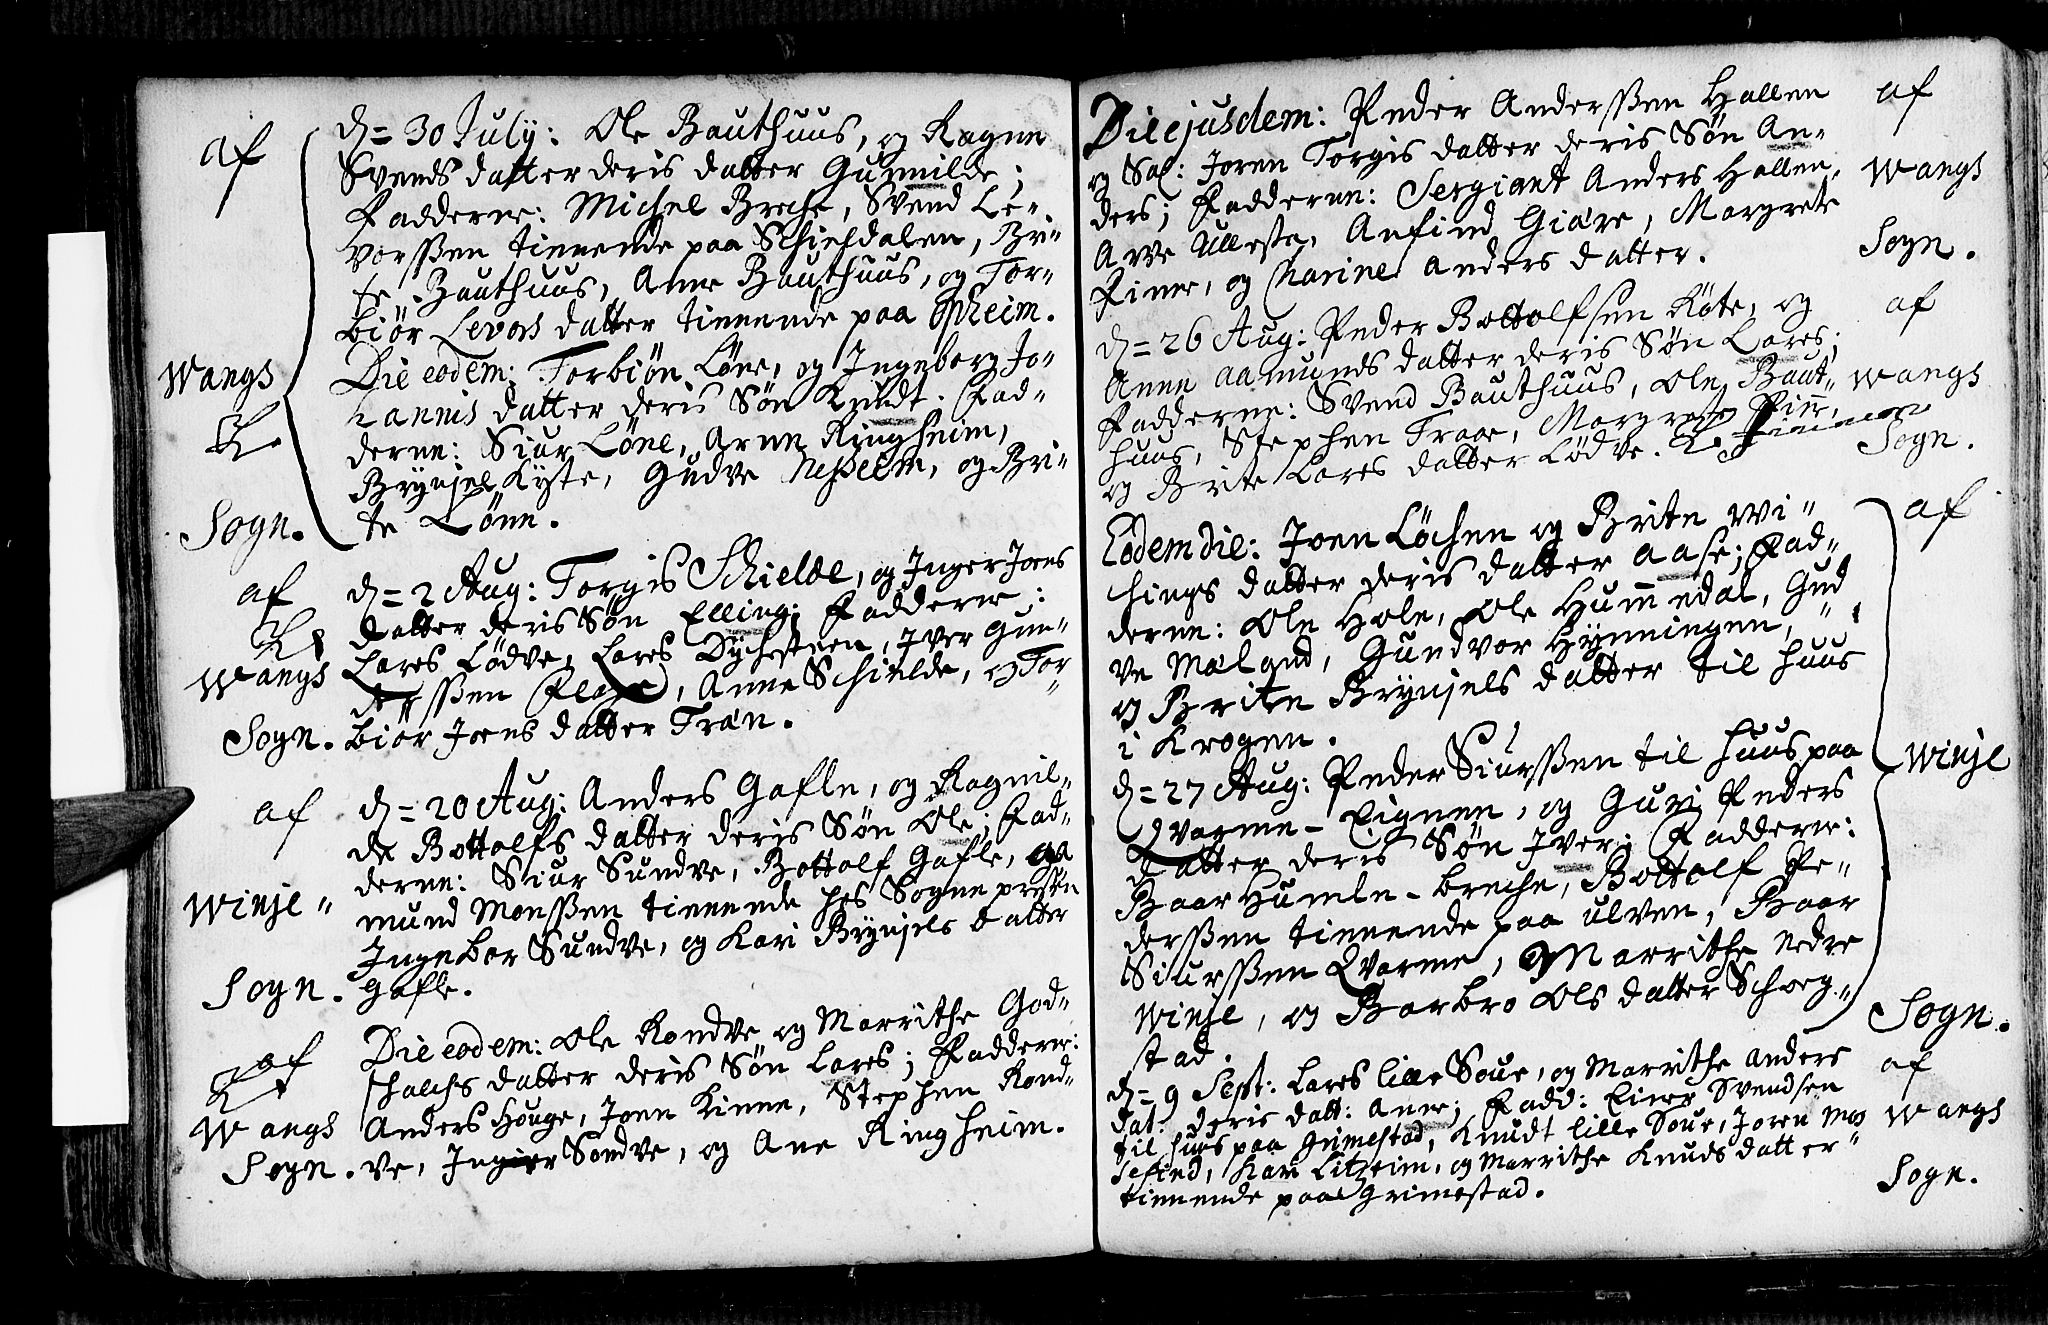 af
Wangs
K.
Sogn.
d= 30 July: Ole Bauthuus, og Ragne
Svends datter deris datter Gunnilde;
Fadderne: Michel Breche, Svend Le-
vorssen tienende paa Schiesdalen, Bri-
te Bauthuus, Anne Bauthuus, og Tor-
biør Levors datter tienende paa Opheim.
Die eodem: Torbiøn Løne, og Ingeborg Jo-
hannis datter deris Søn Knudt. Fad-
derne: Siur Løne, Arne Ringheim,
Brynjel Kyte, Gudve Nesheim, og Bri-
te Løne.
af
K.
Wangs
Sogn.
d= 2 Aug: Torgis Schielde, og Inger Joens
datter deris Søn Elling; Fadderne:
Lares Lødve, Lares Dychesteen, Iver Gun-
derssen Flage, Anne Schielde, og Tor-
biør Joens datter Træn.
af
Winje"
Sogn.
d= 20 Aug: Anders Gafle, og Ragnil-
de Bottolfs datter deris Søn Ole; Fad-
derne: Siur Sundve, Bottolf Gafle, Aa-
mund Monssen tienende hos Sognepresten
Ingebor Sundve, og Kari Brynjels datter
Gafle.
af
K.
Wangs
Sogn.
Die eodem: Ole Rondve og Marrithe God-
schalchs datter deris Søn Lares; Fadderne:
Anders Houge, Joen Kinne, Stephen Rond-
ve, Inger Sondve, og Ane Ringheim.
Die ejusdem: Peder Anderssen Hallen
og Sal: Joren Torgis datter deris Søn An-
ders; Fadderne: Sergiant Anders Hallen,
Arve Ulleste, Anfind Giære, Margrete
Finne, og Charine Anders datter.
af
Wangs
Sogn.
d= 26 Aug: Peder Bottolfsen Røte, og
Anne Aamunds datter deris Søn Lares;
Fadderne: Svend Bauthuus, Ole Baut-
huus, Stephen Traae, Margrete Finne,
og Brite Lares datter Lødve.
af
Wangs
Sogn.
Eodem die: Joen Løchen og Brite Wi-
hings datter deris datter Aase; Fad-
derne: Ole Hole, Ole Hummedal, Gud
ve Mæland, Gundvor Hynningen,
og Brite Brynjels datter til huus
i Krogen.
af
Winje
Sogn.
d= 27 Aug: Peder Siurssen til huus paa
Qvarme-Eignen, og Guri Peders
datter deris Søn Iver; Fadderne:
Baar Humle-breche, Bottolf Pe-
derssen tienende paa Ulven, Baar
Siurssen Qvarme, Marrithe Nedre
Winje, og Barbro Ols datter Schoeg-
stad.
d= 9 Sept: Lares lille Soue, og Marrithe Anders
dat. deris datt: Anne; Fadd: Einer Svendsen
til huus paa Grimestad, Knudt lille Soue, Joren Mos
sefind, Kari Litzheim, og Marrithe Knuds datter
tienende paa Grimestad.
af
Wangs
Sogn.